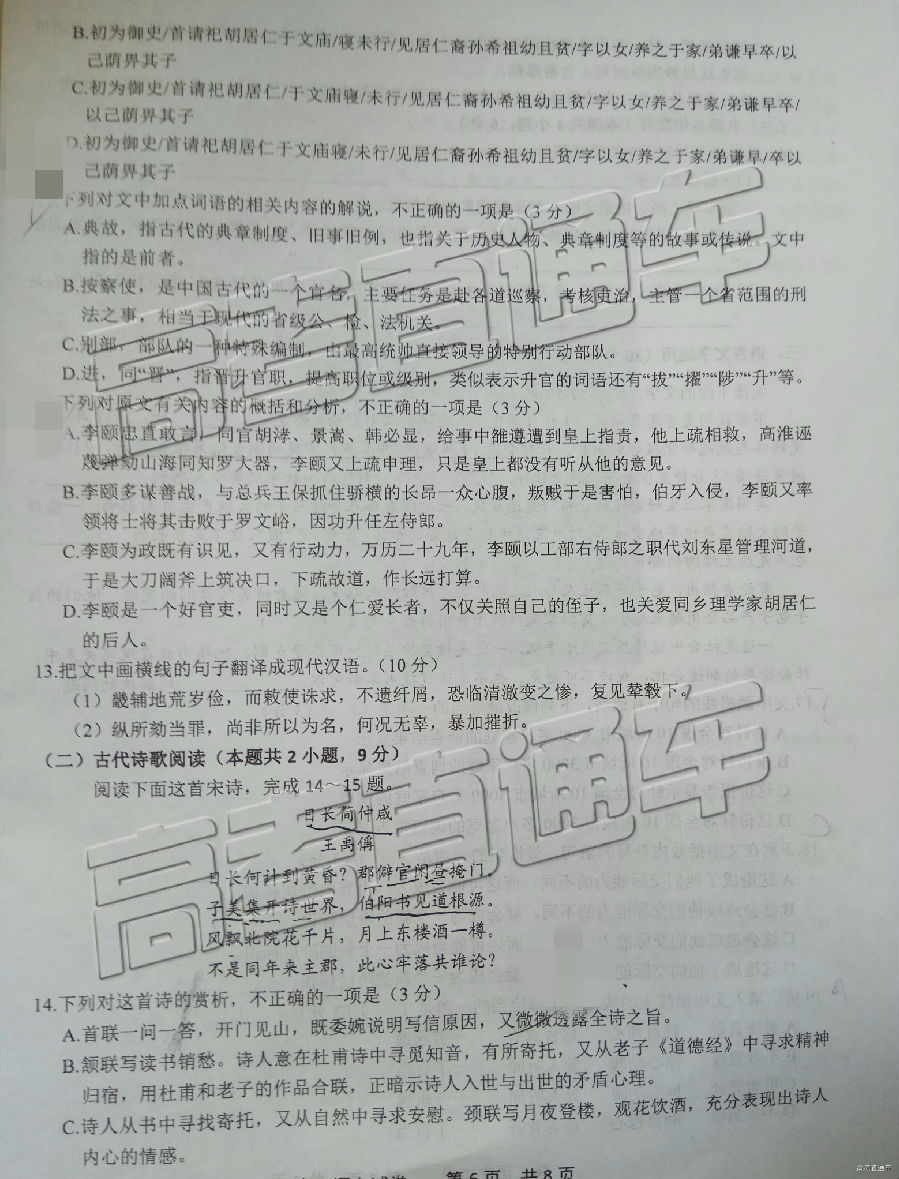 B.初为御史/首请祀胡居仁于文庙/寝未行/见居仁裔孙希祖幼且贫/字以女/养之于家/弟谦早卒/以
己荫畀其子
C.初为御史/首请祀胡居仁/于文庙寝/未行/见居仁裔孙希祖幼且贫/字以女/养之于家/弟谦早卒/
以己荫畀其子
D.初为御史/首请祀胡居仁于文庙寝/未行/见居仁裔孙希祖幼且贫/字以女/养之于家/弟谦早/卒以
己荫畀其子
下列对文中加点词语的相关内容的解说，不正确的一项是（3 分）
A.典故，指古代的典章制度、旧事旧例，也指关于历史人物、典章制度等的故事或传说。文中
指的是前者。
B.按察使，是中国古代的一个官名，主要任务是赴各道巡察，考核吏治，主管一个省范围的刑
法之事，相当于现代的省级公、检、法机关。
C.别部，部队的一种特殊编制，由最高统帅直接领导的特别行动部队。
D.进，同“晋”，指晋升官职，提高职位或级别，类似表示升官的词语还有“拔”“擢”“陟”“升”等。
下列对原文有关内容的概括和分析，不正确的一项是（3 分）
A.李颐忠直敢言，同官胡涍、景嵩、韩必显，给事中雒遵遭到皇上指责，他上疏相救，高淮诬
蔑弹劾山海同知罗大器，李颐又上疏申理，只是皇上都没有听从他的意见。
B.李颐多谋善战，与总兵王保抓住骄横的长昂一众心腹，叛贼于是害怕，伯牙入侵，李颐又率
领将士将其击败于罗文峪，因功升任左侍郎。
C.李颐为政既有识见，又有行动力，万历二十九年，李颐以工部右侍郎之职代刘东星管理河道，
于是大刀阔斧上筑决口，下疏故道，作长远打算。
D.李颐是一个好官吏，同时又是个仁爱长者，不仅关照自己的侄子，也关爱同乡理学家胡居仁
的后人。
13.把文中画横线的句子翻译成现代汉语。（10 分）
（1）畿辅地荒岁俭，而敕使诛求，不遗纤屑，恐临清激变之惨，复见辇毂下。
（2）纵所劾当罪，尚非所以为名，何况无辜，暴加摧折。
（二）古代诗歌阅读（本题共 2 小题，9 分）
阅读下面这首宋诗，完成 14～15 题。
日长简仲咸
王禹偁
日长何计到黄昏？郡僻官闲昼掩门。
子美集开诗世界，伯阳书见道根源。
风飘北院花千片，月上东楼酒一樽。
不是同年来主郡，此心牢落共谁论？
14.下列对这首诗的赏析，不正确的一项是（3 分）
A.首联一问一答，开门见山，既委婉说明写信原因，又微微透露全诗之旨。
B.颔联写读书销愁。诗人意在杜甫诗中寻觅知音，有所寄托，又从老子《道德经》中寻求精神
归宿，用杜甫和老子的作品合联，正暗示诗人入世与出世的矛盾心理。
C.诗人从书中寻找寄托，又从自然中寻求安慰。颈联写月夜登楼，观花饮酒，充分表现出诗人
内心的情感。
第 6 页 共 8 页
高考直通车
高考直通车
高考直通车